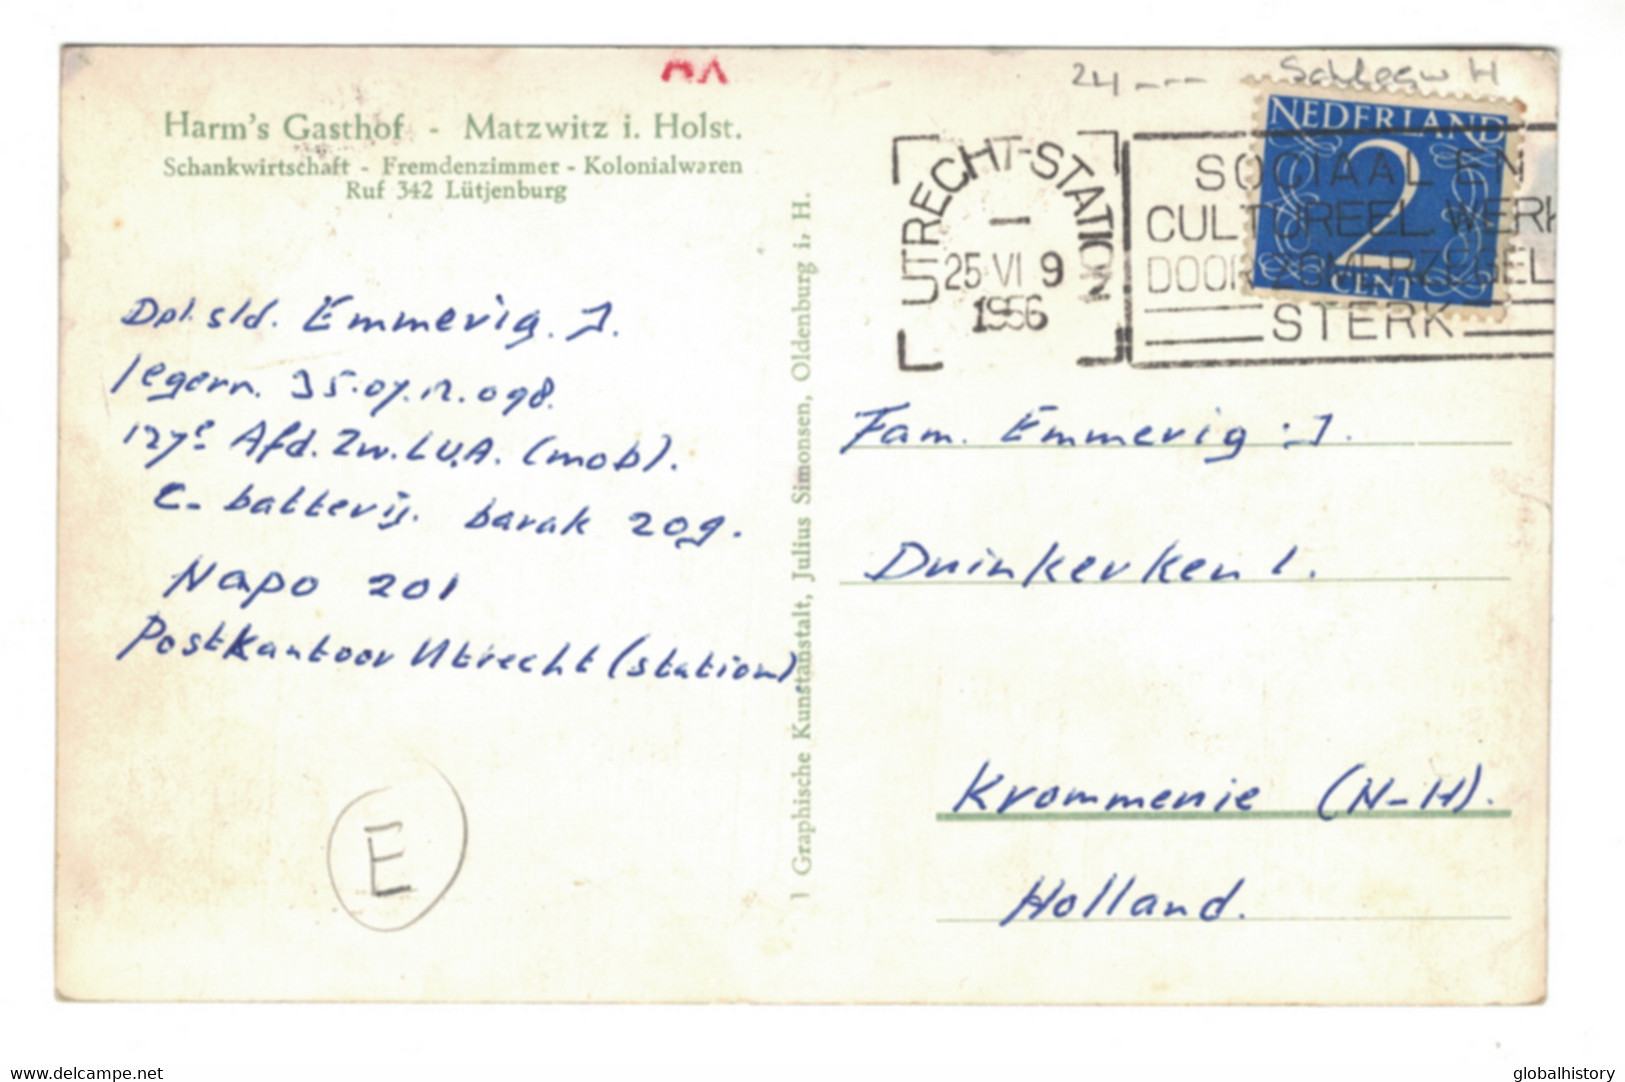 24 --- Schlesw H
Harm's Gasthof - Matzwitz i. Holst.
Schankwirtschaft - Fremdenzimmer - Kolonialwaren
Ruf 342 Lütjenburg
UTRECHT-STATION
25 VI 9
1956
SOCIAAL EN
CULTUREEL WERK
DOOR ZOMERZEGEL
STERK
NEDERLAND
2
CENT
Dpl. sld. Emmerig. J.
legern. 35.07.12.098.
127e Afd. Zw. L.U.A. (mob).
C- batterij. barak 209.
Napo 201
Postkantoor Utrecht (station)
E
Graphische Kunstanstalt, Julius Simonsen, Oldenburg i. H.
Fam. Emmerig : J.
Duinkerken 1.
Krommenie (N-H).
Holland.
www.delcampe.net
globalhistory